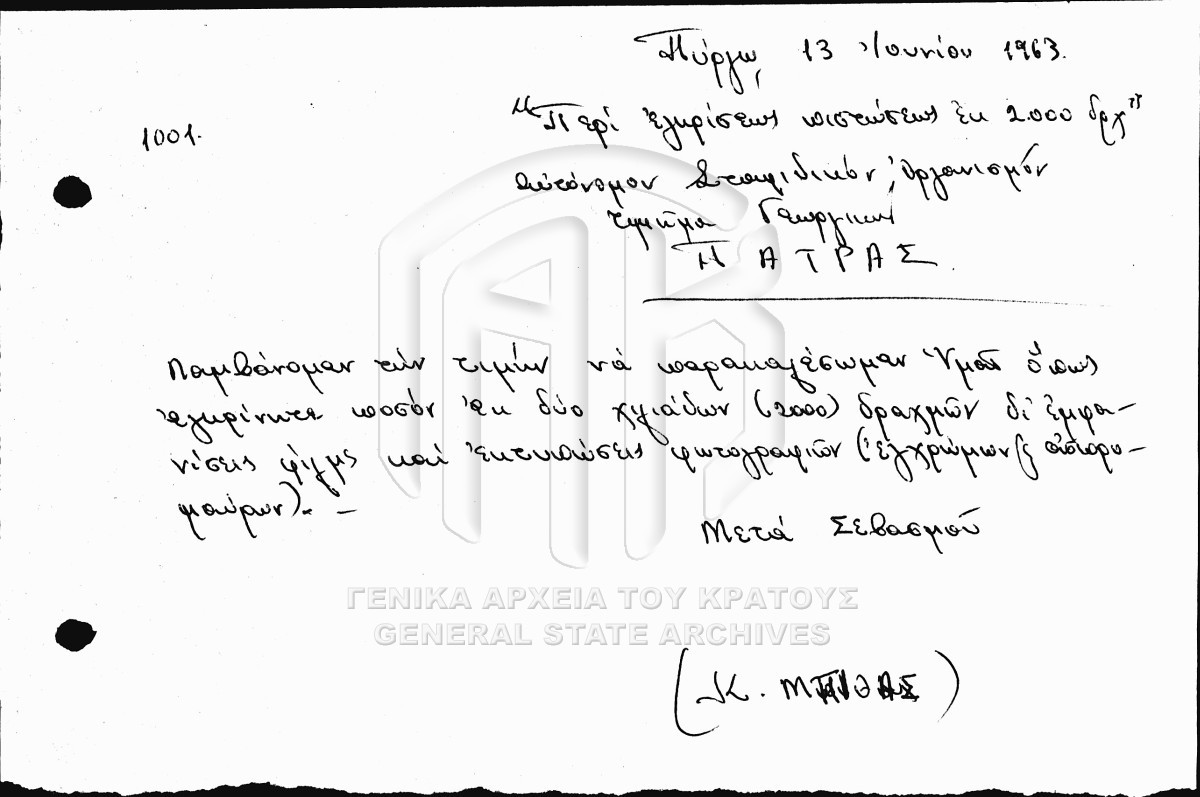 Πύργῳ 13 Ἰουνίου 1963.
1001.
"Περί ἐγκρίσεως πιστώσεως ἐκ 2.000 δρχ"
Αὐτόνομον Σταφιδικόν Ὀργανισμόν
Τμῆμα Γεωργικόν
ΠΑΤΡΑΣ.
Λαμβάνομεν τήν τιμήν νά παρακαλέσωμεν Ὑμᾶς ὅπως
ἐγκρίνητε ποσόν ἐκ δύο χιλιάδων (2000) δραχμῶν δι' ἐμφα-
νίσεις φίλμς καί ἐκτυπώσεις φωτογραφιῶν (ἐγχρώμων & ἀσπρο-
μαύρων). -
Μετά Σεβασμοῦ
ΓΕΝΙΚΑ ΑΡΧΕΙΑ ΤΟΥ ΚΡΑΤΟΥΣ
GENERAL STATE ARCHIVES
(Κ. ΜΠΙΘΑΣ)